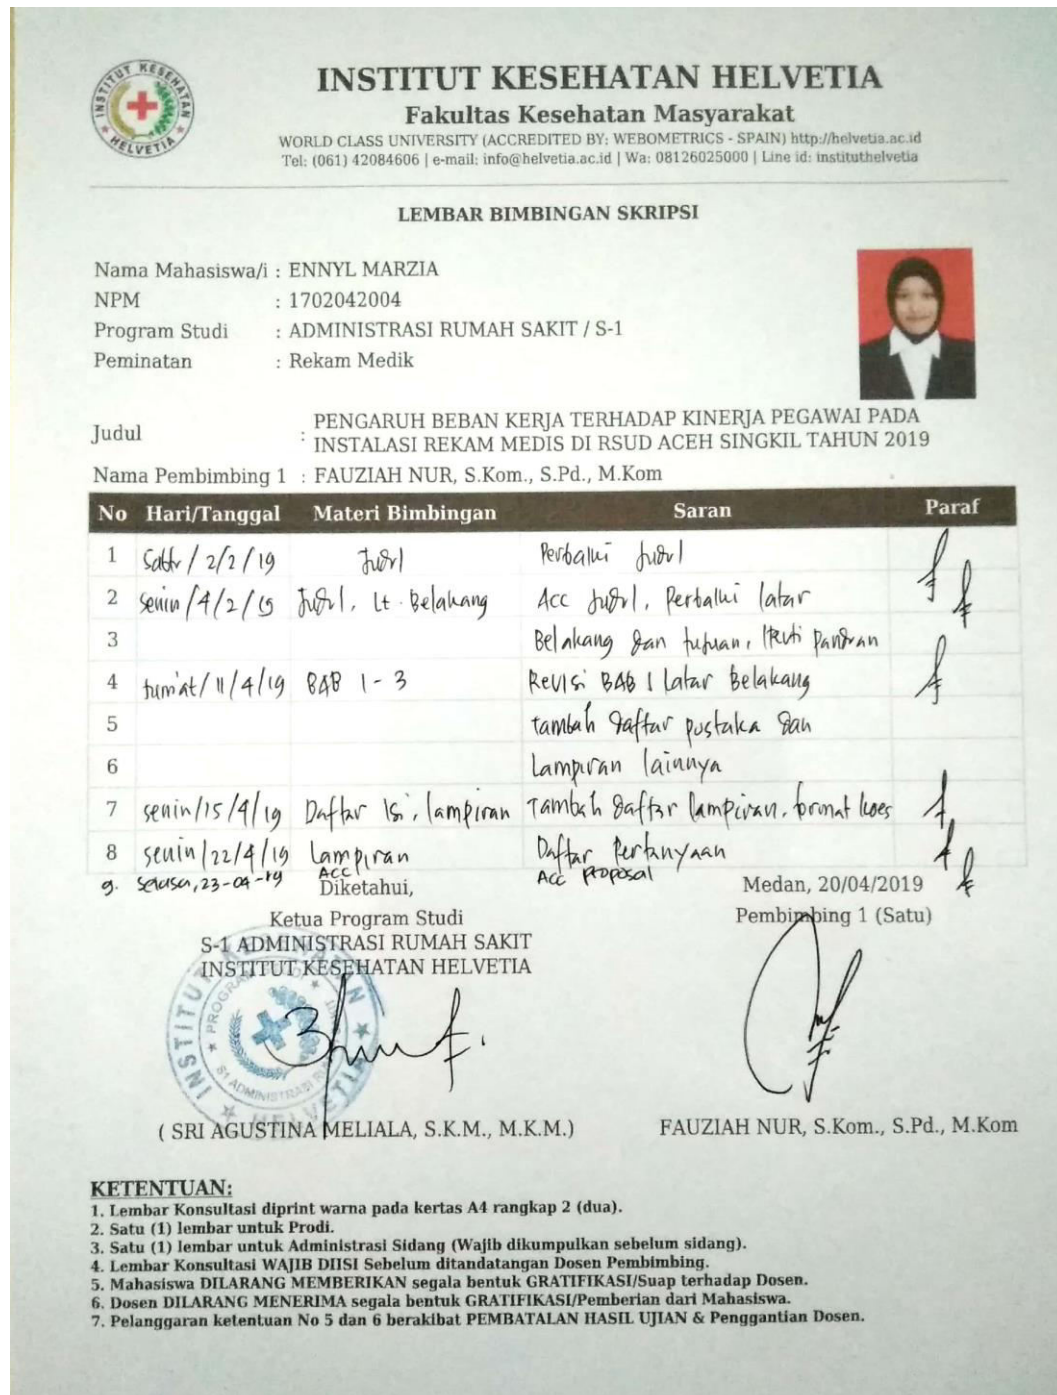 INSTITUT KESEHATAN HELVETIA
INSTITUT KESEHATAN HELVETIA
Fakultas Kesehatan Masyarakat
WORLD CLASS UNIVERSITY (ACCREDITED BY: WEBOMETRICS - SPAIN) http://helvetia.ac.id
Tel: (061) 42084606 | e-mail: info@helvetia.ac.id | Wa: 08126025000 | Line id: instituthelvetia
LEMBAR BIMBINGAN SKRIPSI
Nama Mahasiswa/i : ENNYL MARZIA
NPM : 1702042004
Program Studi : ADMINISTRASI RUMAH SAKIT / S-1
Peminatan : Rekam Medik
Judul : PENGARUH BEBAN KERJA TERHADAP KINERJA PEGAWAI PADA
INSTALASI REKAM MEDIS DI RSUD ACEH SINGKIL TAHUN 2019
Nama Pembimbing 1 : FAUZIAH NUR, S.Kom., S.Pd., M.Kom
No Hari/Tanggal Materi Bimbingan Saran Paraf
1 Sabtu / 2/2/19 Judul Perbaiki Judul
2 Senin /4/2/19 Judul, Lt. Belakang Acc Judul, Perbaiki latar
3 Belakang dan tujuan, Ikuti Panduan
4 Jum'at/ 11/4/19 BAB 1-3 Revisi BAB 1 Latar Belakang
5 tambah daftar pustaka dan
6 Lampiran lainnya
7 Senin/15/4/19 Daftar Isi, lampiran Tambah daftar lampiran, format
8 Senin/22/4/19 Lampiran Daftar Pertanyaan
9. Selasa, 23-04-19 ACC Acc Proposal
Diketahui, Medan, 20/04/2019
Ketua Program Studi Pembimbing 1 (Satu)
S-1 ADMINISTRASI RUMAH SAKIT
INSTITUT KESEHATAN HELVETIA
( SRI AGUSTINA MELIALA, S.K.M., M.K.M.) FAUZIAH NUR, S.Kom., S.Pd., M.Kom
KETENTUAN:
1. Lembar Konsultasi diprint warna pada kertas A4 rangkap 2 (dua).
2. Satu (1) lembar untuk Prodi.
3. Satu (1) lembar untuk Administrasi Sidang (Wajib dikumpulkan sebelum sidang).
4. Lembar Konsultasi WAJIB DIISI Sebelum ditandatangan Dosen Pembimbing.
5. Mahasiswa DILARANG MEMBERIKAN segala bentuk GRATIFIKASI/Suap terhadap Dosen.
6. Dosen DILARANG MENERIMA segala bentuk GRATIFIKASI/Pemberian dari Mahasiswa.
7. Pelanggaran ketentuan No 5 dan 6 berakibat PEMBATALAN HASIL UJIAN & Penggantian Dosen.